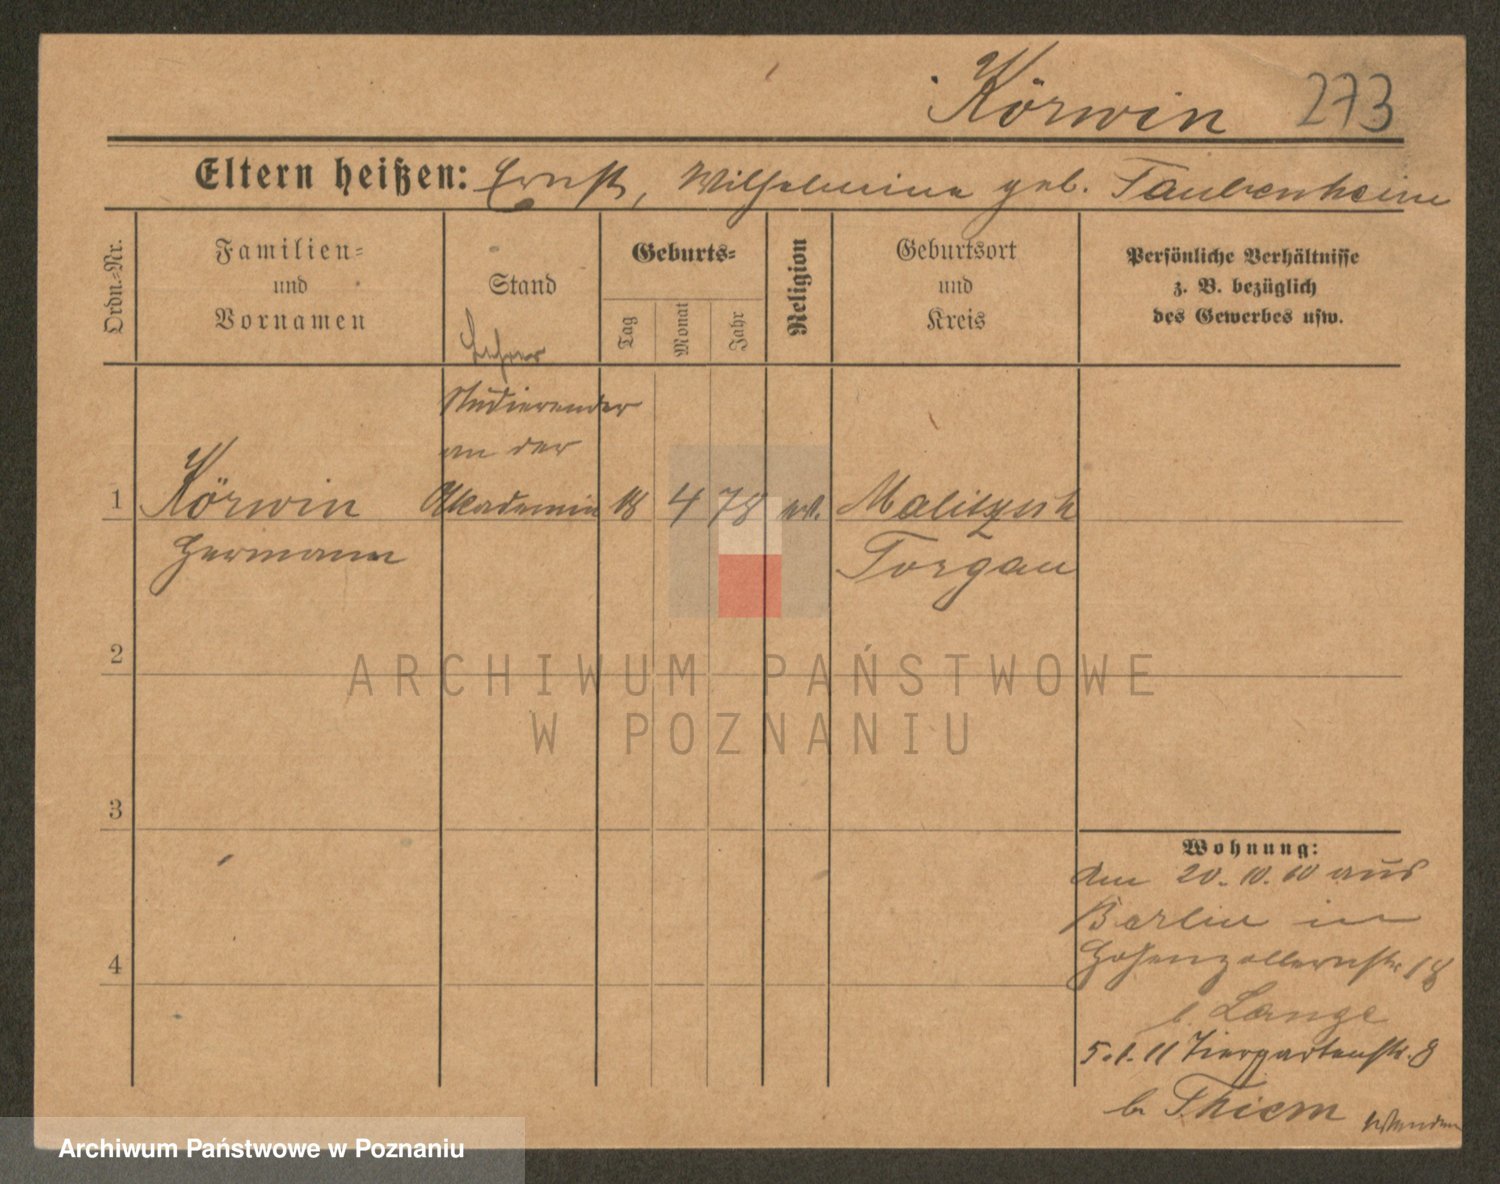 Körwin 273
Eltern heißen: Ernst, Wilhelmine geb. Taubenheim
Ordn.-Nr.
Familien-
und
Vornamen
Stand
Lehrer
Geburts-
Tag
Monat
Jahr
Religion
Geburtsort
und
Kreis
Persönliche Verhältnisse
z. B. bezüglich
des Gewerbes usw.
Studierender
an der
1 Körwin Akademie 18 4 78 ev. Malitzsch
Hermann Torgau
2
3
4
Wohnung:
Am 20.10.10 aus
Berlin in
Hohenzollernstr. 18
b. Lange
5.1.11 Tiergartenstr. 8
b. Thiem wenden
ARCHIWUM PAŃSTWOWE
W POZNANIU
Archiwum Państwowe w Poznaniu